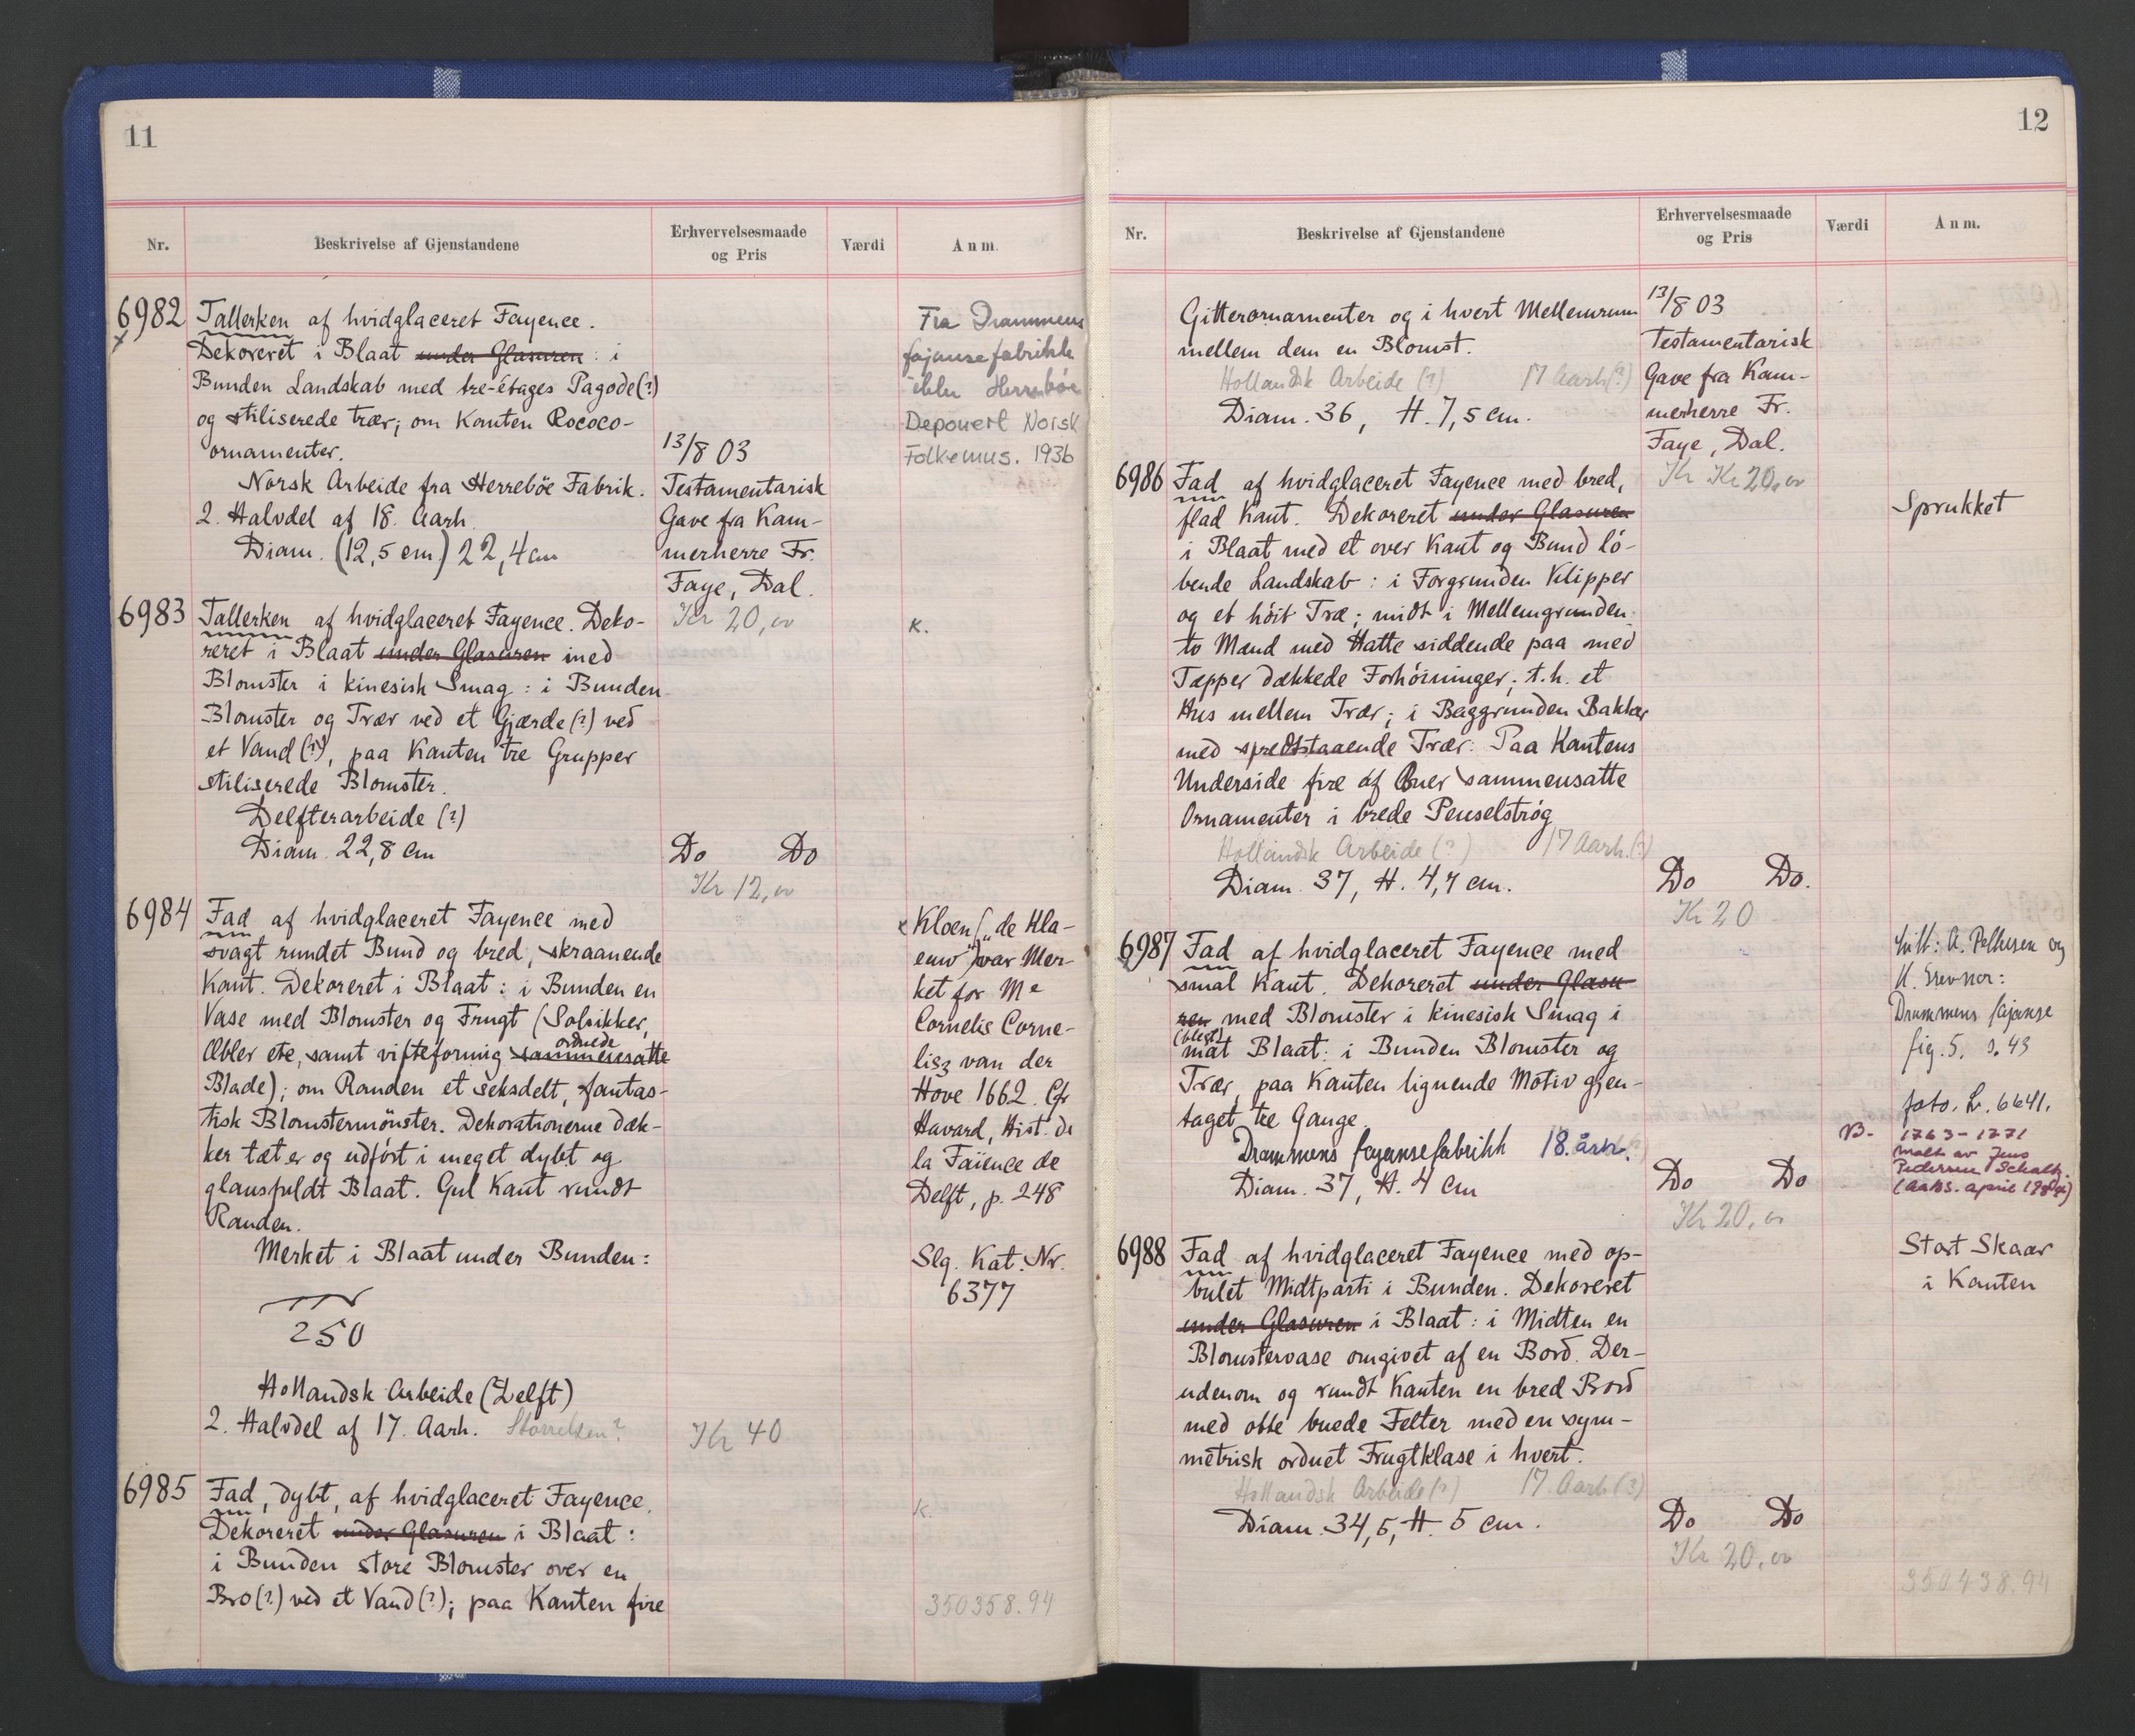 11
Nr.
Beskrivelse af Gjenstandene
Erhvervelsesmaade
og Pris
Værdi
Anm.
6982
Tallerken af hvidglaceret Fayence.
Dekoreret i Blaat under Glasuren : i
Bunden Landskab med tre-étages Pagode(?)
og stiliserede trær; om Kanten Rococo-
ornamenter.
Norsk Arbeide fra Herreböe Fabrik.
2. Halvdel af 18. Aarh.
Diam. (12,5 cm) 22,4 cm
13/8 03
Testamentarisk
Gave fra Kam-
merherre Fr.
Faye, Dal.
Kr 20,00
Fra Drammens
fajansefabrikk
eller Herrebøe
Deponert Norsk
Folkemus. 1936
6983
Tallerken af hvidglaceret Fayence. Deko-
reret i Blaat under Glasuren med
Blomster i kinesisk Smag : i Bunden
Blomster og Trær ved et Gjærde(?) ved
et Vand(?), paa Kanten tre Grupper
stiliserede Blomster.
Delfterarbeide (?)
Diam. 22,8 cm
Do Do
Kr 12,00
K.
6984
Fad af hvidglaceret Fayence med
svagt rundet Bund og bred, skraanende
Kant. Dekoreret i Blaat : i Bunden en
Vase med Blomster og Frugt (Solsikker,
ordnede
Æbler etc, samt vifteformig sammensatte
Blade); om Randen et seksdelt, fantas-
tisk Blomstermönster. Dekorationerne dæk-
ker tæt er og udfört i meget dybt og
glansfuldt Blaat. Gul Kant rundt
Randen.
Merket i Blaat under Bunden:
250
Hollandsk Arbeide (Delft)
2. Halvdel af 17. Aarh. Størrelsen?
Kr 40
Kloen („de Kla-
euw") var Mer-
ket for Me
Cornelis Corne-
lisz van der
Hove 1662. Cfr
Havard, Hist. de
la Faïence de
Delft, p. 248
Slg. Kat. Nr.
6377
6985
Fad, dybt, af hvidglaceret Fayence.
Dekoreret under Glasuren i Blaat :
i Bunden store Blomster over en
Bro(?) ved et Vand(?); paa Kanten fire
K.
350358.94
12
Nr.
Beskrivelse af Gjenstandene
Erhvervelsesmaade
og Pris
Værdi
Anm.
Gitterornamenter og i hvert Mellemrum
mellem dem en Blomst.
Hollandsk Arbeide (?) 17 Aarh(?)
Diam. 36, H. 7,5 cm.
13/8 03
Testamentarisk
Gave fra Kam-
merherre Fr.
Faye, Dal.
Kr Kr 20,00
6986
Fad af hvidglaceret Fayence med bred,
flad Kant. Dekoreret under Glasuren
i Blaat med et over Kant og Bund lö-
bende Landskab : i Forgrunden Klipper
og et höit Træ; midt i Mellemgrunden
to Mænd med Hatte siddende paa med
Tæpper dækkede Forhöininger; t.h. et
Hus mellem Trær; i Baggrunden Bakker
med spredtstaaende Trær. Paa Kantens
Underside fire af Buer sammensatte
Ornamenter i brede Penselströg
Hollandsk Arbeide (?) 17 Aarh.(?)
Diam. 37, H. 4,4 cm.
Do Do.
Kr 20
Sprukket
6987
Fad af hvidglaceret Fayence med
smal Kant. Dekoreret under Glasu-
ren med Blomster i kinesisk Smag i
(blegt)
mat Blaat : i Bunden Blomster og
Trær, paa Kanten lignende Motiv gjen-
taget tre Gange
Drammens fayansefabrikk 18. årh.
Diam. 37, H. 4 cm
Do Do
Kr 20,00
Litt: A. Polhesen og
K. Grevnor:
Drammens fajanse
fig. 5. s. 43
foto. L. 6641.
1763-1771
malt av Jens
Pedersen
6988
Fad af hvidglaceret Fayence med op-
bulet Midtparti i Bunden. Dekoreret
under Glasuren i Blaat : i Midten en
Blomstervase omgivet af en Bord. Der-
udenom og rundt Kanten en bred Bord
med otte buede Felter med en sym-
metrisk ordnet Frugtklase i hvert.
Hollandsk Arbeide(?) 17 Aarh (?)
Diam. 34,5, H. 5 cm.
Do Do
Kr 20,00
Stort Skaar
i Kanten